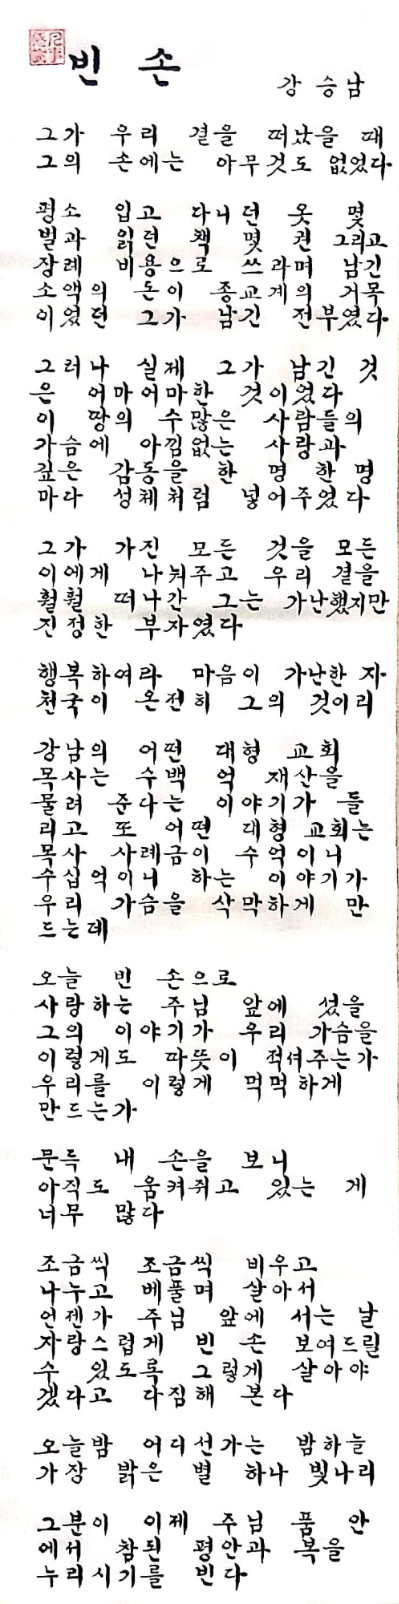 빈 손
강승남
그가 우리 곁을 떠났을 때
그의 손에는 아무것도 없었다
평소 입고 다니던 옷 몇
벌과 읽던 책 몇 권 그리고
장례 비용으로 쓰라며 남긴
소액의 돈이 종교계의 거목
이었던 그가 남긴 전부였다
그러나 실제 그가 남긴 것
은 어마어마한 것이었다
이 땅의 수많은 사람들의
가슴에 아낌없는 사랑과
깊은 감동을 한 명 한 명
마다 성체처럼 넣어주었다
그가 가진 모든 것을 모든
이에게 나눠주고 우리 곁을
훨훨 떠나간 그는 가난했지만
진정한 부자였다
행복하여라 마음이 가난한 자
천국이 온전히 그의 것이리
강남의 어떤 대형 교회
목사는 수백 억 재산을
물려 준다는 이야기가 들
리고 또 어떤 대형 교회는
목사 사례금이 수억이니
수십억이니 하는 이야기가
우리 가슴을 삭막하게 만
드는데
오늘 빈 손으로
사랑하는 주님 앞에 섰을
그의 이야기가 우리 가슴을
이렇게도 따뜻이 적셔주는가
우리를 이렇게 먹먹하게
만드는가
문득 내 손을 보니
아직도 움켜쥐고 있는 게
너무 많다
조금씩 조금씩 비우고
나누고 베풀며 살아서
언젠가 주님 앞에 서는 날
자랑스럽게 빈 손 보여드릴
수 있도록 그렇게 살아야
겠다고 다짐해 본다
오늘밤 어디선가는 밤하늘
가장 밝은 별 하나 빛나리
그분이 이제 주님 품 안
에서 참된 평안과 복을
누리시기를 빈다